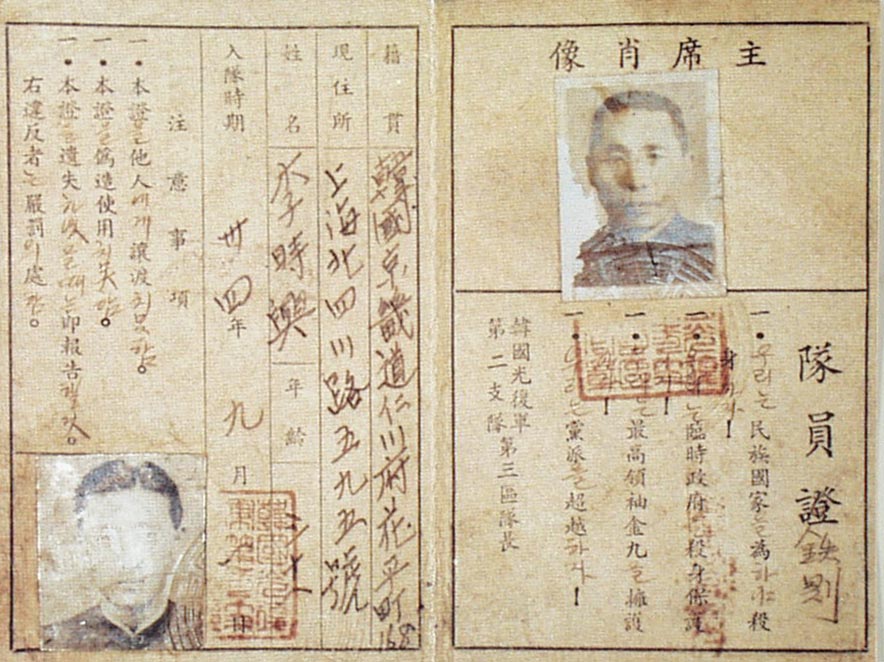 主席肖像
隊員證 鉄則
一・우리는民族國家를為하여殺
身하자!
一・우리는臨時政府를殺身保護
하자!
一・우리는最高領袖金九를擁護
하자!
一・우리는黨派를超越하자!
韓國光復軍
第二支隊第三區隊長
籍貫 韓國京畿道仁川府花平町168
現住所 上海北四川路五九五號
姓名 李時興 年齡
入隊時期 卅四年九月 日
注意事項
一・本證을他人에게讓渡치못함。
一・本證을僞造使用치못함。
一・本證을遺失하였을때는即報告할것。
右違反者는嚴罰에處함。